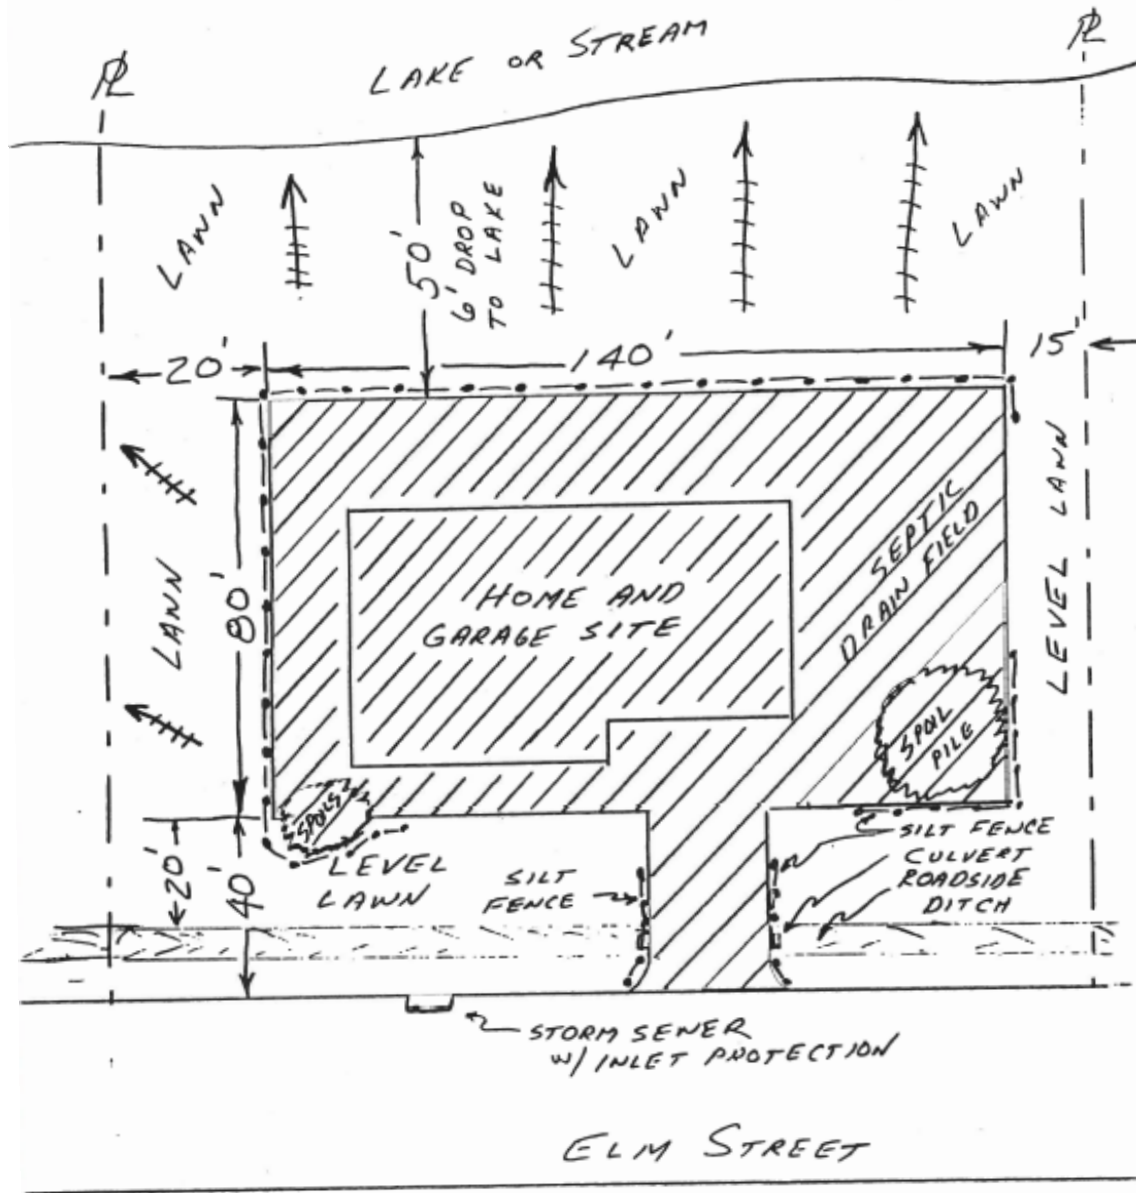 PL
PL
LAKE OR STREAM
LAWN
50'
6' DROP
TO LAKE
LAWN
LAWN
20'
140'
15'
LAWN
80'
HOME AND
GARAGE SITE
SEPTIC
DRAIN FIELD
LEVEL LAWN
SPOIL
PILE
SPOILS
20'
40'
LEVEL
LAWN
SILT
FENCE
SILT FENCE
CULVERT
ROADSIDE
DITCH
STORM SEWER
W/ INLET PROTECTION
ELM STREET